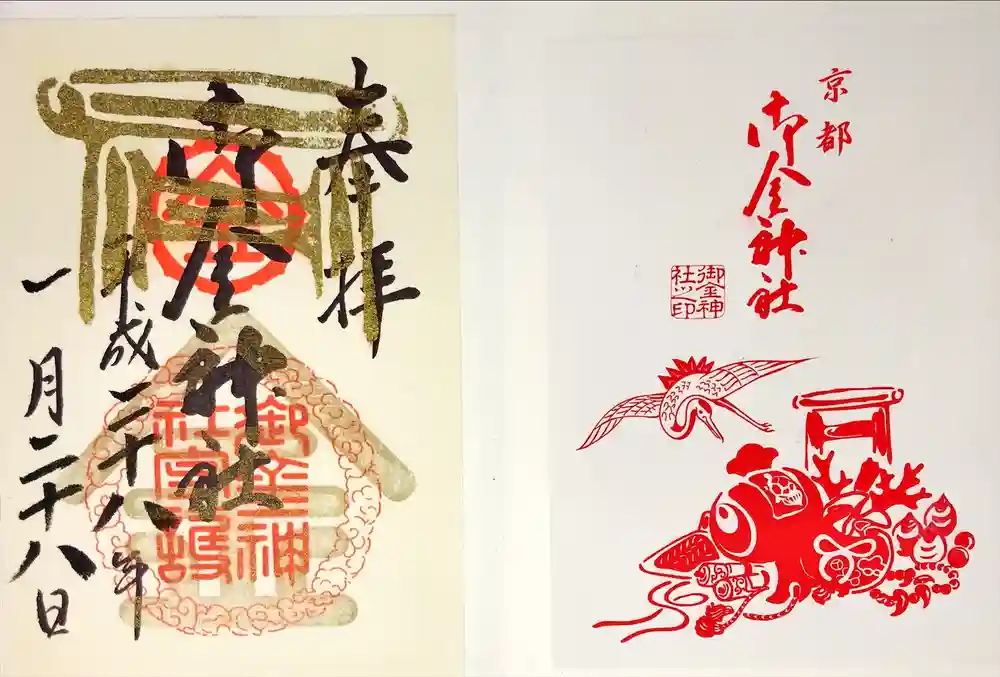 奉拝
御金神社
平成二十八年
一月二十八日
御金神
社宝鎶
京都
御金神社
御金神
社之印